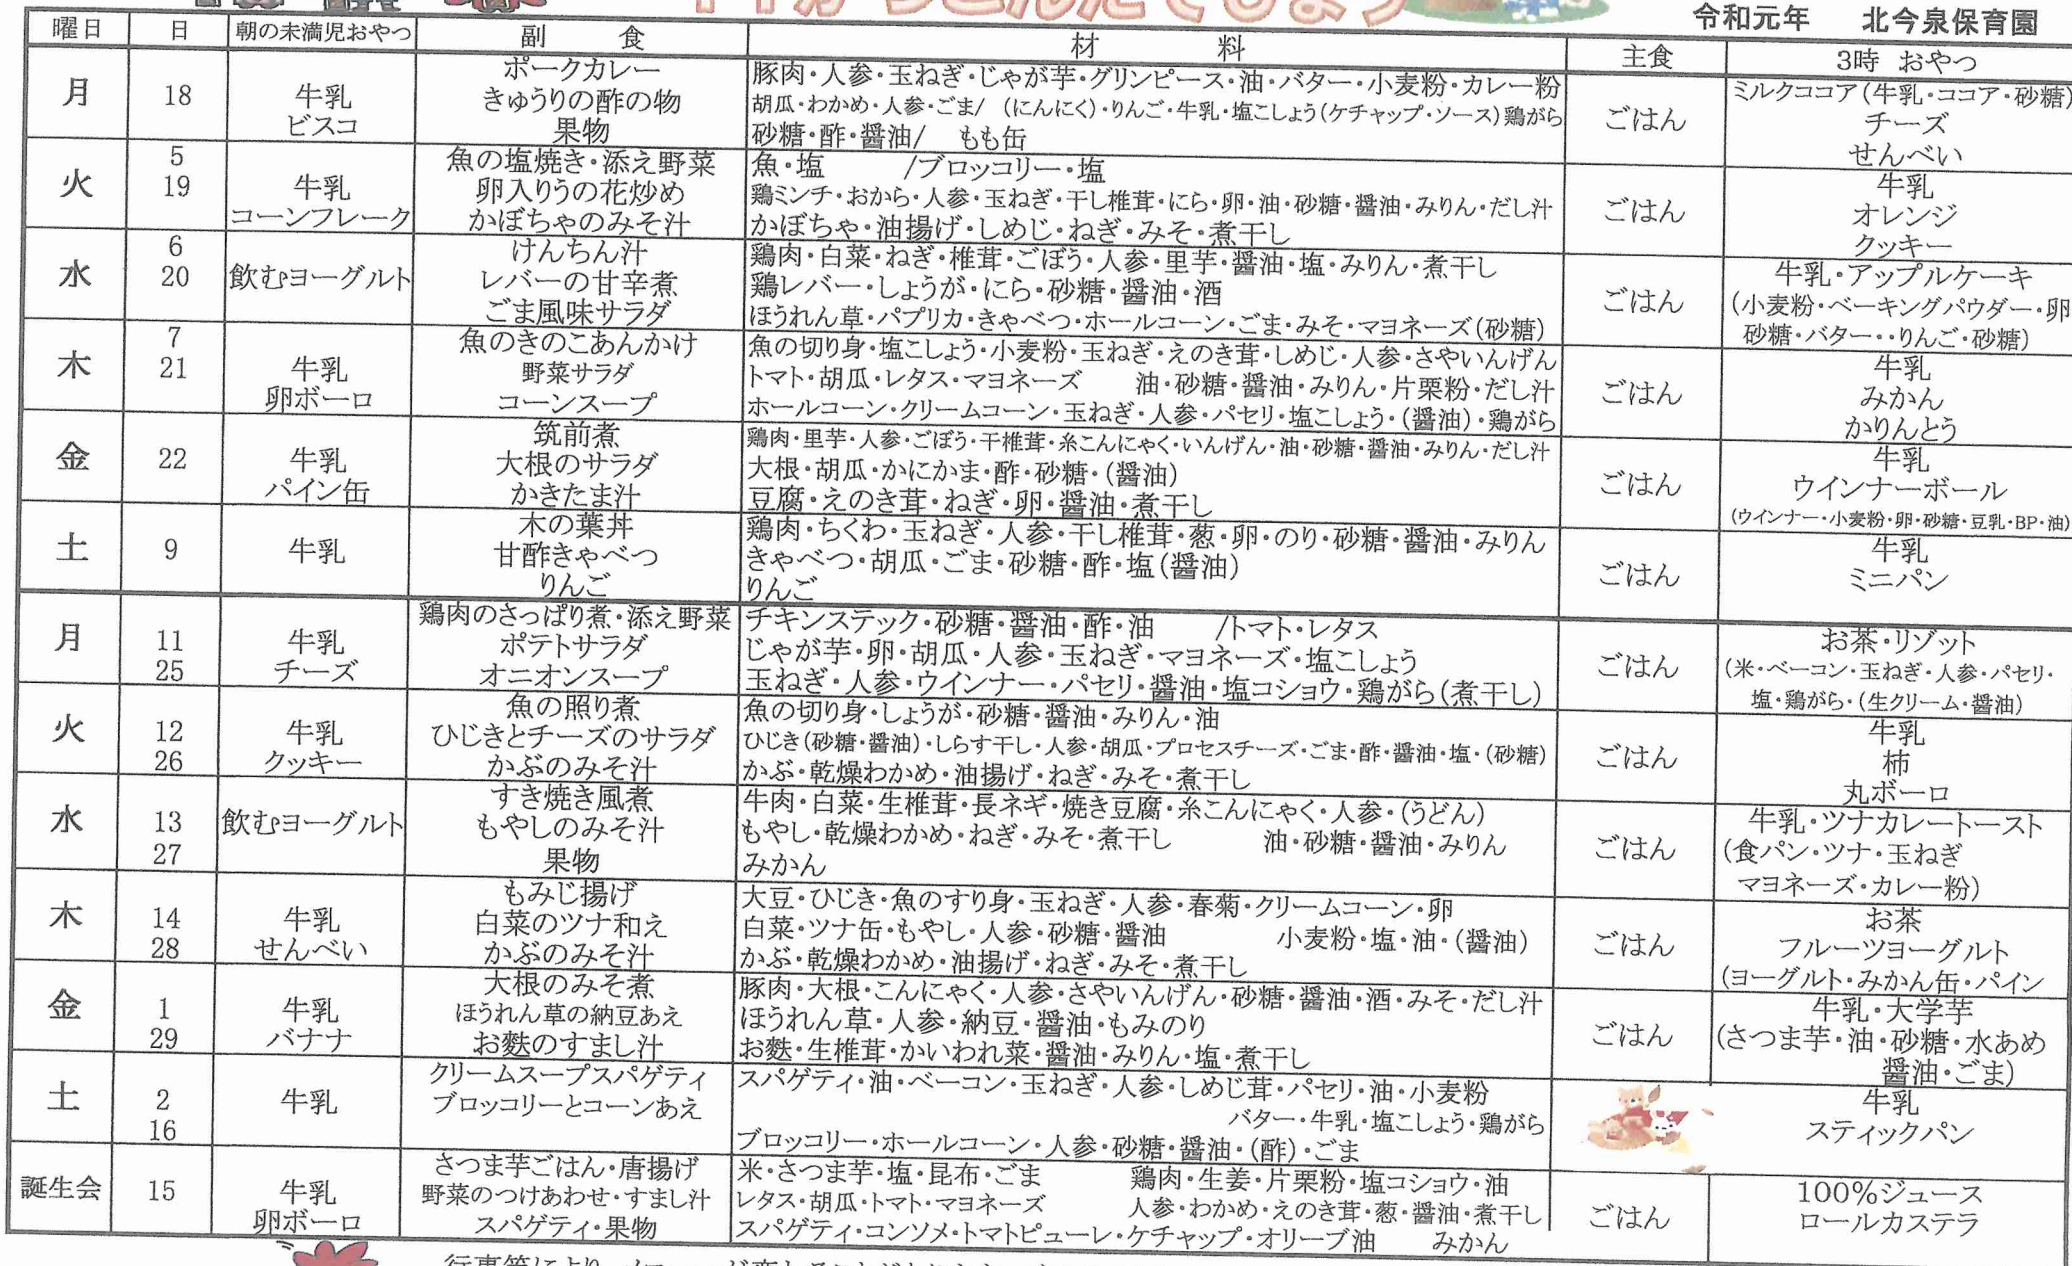 令和元年 北今泉保育園
曜日 日 朝の未満児おやつ 副 食 材 料 主食 3時 おやつ
月 18 牛乳 ビスコ
ポークカレー
きゅうりの酢の物
果物
豚肉・人参・玉ねぎ・じゃが芋・グリンピース・油・バター・小麦粉・カレー粉
胡瓜・わかめ・人参・ごま/ (にんにく)・りんご・牛乳・塩こしょう(ケチャップ・ソース)鶏がら
砂糖・酢・醤油/ もも缶
ごはん
ミルクココア(牛乳・ココア・砂糖)
チーズ
せんべい
火 5 19 牛乳 コーンフレーク
魚の塩焼き・添え野菜
卵入りうの花炒め
かぼちゃのみそ汁
魚・塩 /ブロッコリー・塩
鶏ミンチ・おから・人参・玉ねぎ・干し椎茸・にら・卵・油・砂糖・醤油・みりん・だし汁
かぼちゃ・油揚げ・しめじ・ねぎ・みそ・煮干し
ごはん
牛乳
オレンジ
クッキー
水 6 20 飲むヨーグルト
けんちん汁
レバーの甘辛煮
ごま風味サラダ
鶏肉・白菜・ねぎ・椎茸・ごぼう・人参・里芋・醤油・塩・みりん・煮干し
鶏レバー・しょうが・にら・砂糖・醤油・酒
ほうれん草・パプリカ・きゃべつ・ホールコーン・ごま・みそ・マヨネーズ(砂糖)
ごはん
牛乳・アップルケーキ
(小麦粉・ベーキングパウダー・卵
砂糖・バター・・りんご・砂糖)
木 7 21 牛乳 卵ボーロ
魚のきのこあんかけ
野菜サラダ
コーンスープ
魚の切り身・塩こしょう・小麦粉・玉ねぎ・えのき茸・しめじ・人参・さやいんげん
トマト・胡瓜・レタス・マヨネーズ 油・砂糖・醤油・みりん・片栗粉・だし汁
ホールコーン・クリームコーン・玉ねぎ・人参・パセリ・塩こしょう・(醤油)・鶏がら
ごはん
牛乳
みかん
かりんとう
金 22 牛乳 パイン缶
筑前煮
大根のサラダ
かきたま汁
鶏肉・里芋・人参・ごぼう・干椎茸・糸こんにゃく・いんげん・油・砂糖・醤油・みりん・だし汁
大根・胡瓜・かにかま・酢・砂糖・(醤油)
豆腐・えのき茸・ねぎ・卵・醤油・煮干し
ごはん
牛乳
ウインナーボール
(ウインナー・小麦粉・卵・砂糖・豆乳・BP・油)
土 9 牛乳
木の葉丼
甘酢きゃべつ
りんご
鶏肉・ちくわ・玉ねぎ・人参・干し椎茸・葱・卵・のり・砂糖・醤油・みりん
きゃべつ・胡瓜・ごま・砂糖・酢・塩(醤油)
りんご
ごはん
牛乳
ミニパン
月 11 25 牛乳 チーズ
鶏肉のさっぱり煮・添え野菜
ポテトサラダ
オニオンスープ
チキンステック・砂糖・醤油・酢・油 /トマト・レタス
じゃが芋・卵・胡瓜・人参・玉ねぎ・マヨネーズ・塩こしょう
玉ねぎ・人参・ウインナー・パセリ・醤油・塩コショウ・鶏がら(煮干し)
ごはん
お茶・リゾット
(米・ベーコン・玉ねぎ・人参・パセリ・
塩・鶏がら・(生クリーム・醤油)
火 12 26 牛乳 クッキー
魚の照り煮
ひじきとチーズのサラダ
かぶのみそ汁
魚の切り身・しょうが・砂糖・醤油・みりん・油
ひじき(砂糖・醤油)・しらす干し・人参・胡瓜・プロセスチーズ・ごま・酢・醤油・塩・(砂糖)
かぶ・乾燥わかめ・油揚げ・ねぎ・みそ・煮干し
ごはん
牛乳
柿
丸ボーロ
水 13 27 飲むヨーグルト
すき焼き風煮
もやしのみそ汁
果物
牛肉・白菜・生椎茸・長ネギ・焼き豆腐・糸こんにゃく・人参・(うどん)
もやし・乾燥わかめ・ねぎ・みそ・煮干し 油・砂糖・醤油・みりん
みかん
ごはん
牛乳・ツナカレートースト
(食パン・ツナ・玉ねぎ
マヨネーズ・カレー粉)
木 14 28 牛乳 せんべい
もみじ揚げ
白菜のツナ和え
かぶのみそ汁
大豆・ひじき・魚のすり身・玉ねぎ・人参・春菊・クリームコーン・卵
白菜・ツナ缶・もやし・人参・砂糖・醤油 小麦粉・塩・油・(醤油)
かぶ・乾燥わかめ・油揚げ・ねぎ・みそ・煮干し
ごはん
お茶
フルーツヨーグルト
(ヨーグルト・みかん缶・パイン
金 1 29 牛乳 バナナ
大根のみそ煮
ほうれん草の納豆あえ
お麩のすまし汁
豚肉・大根・こんにゃく・人参・さやいんげん・砂糖・醤油・酒・みそ・だし汁
ほうれん草・人参・納豆・醤油・もみのり
お麩・生椎茸・かいわれ菜・醤油・みりん・塩・煮干し
ごはん
牛乳・大学芋
(さつま芋・油・砂糖・水あめ
醤油・ごま)
土 2 16 牛乳
クリームスープスパゲティ
ブロッコリーとコーンあえ
スパゲティ・油・ベーコン・玉ねぎ・人参・しめじ茸・パセリ・油・小麦粉
バター・牛乳・塩こしょう・鶏がら
ブロッコリー・ホールコーン・人参・砂糖・醤油・(酢)・ごま
牛乳
スティックパン
誕生会 15 牛乳 卵ボーロ
さつま芋ごはん・唐揚げ
野菜のつけあわせ・すまし汁
スパゲティ・果物
米・さつま芋・塩・昆布・ごま 鶏肉・生姜・片栗粉・塩コショウ・油
レタス・胡瓜・トマト・マヨネーズ 人参・わかめ・えのき茸・葱・醤油・煮干し
スパゲティ・コンソメ・トマトピューレ・ケチャップ・オリーブ油 みかん
ごはん
100%ジュース
ロールカステラ